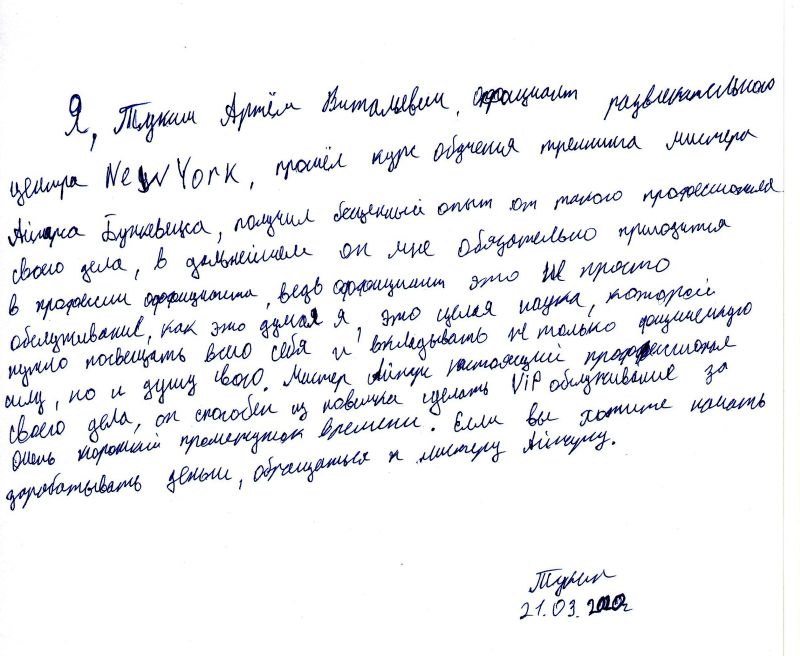 Я, Тукин Артём Витальевич, официант развлекательного
центра NewYork, прошёл курс обучения тренинга мистера
получил бесценный опыт от такого профессионала
своего дела, в дальнейшем он мне обязательно пригодится
в профессии оффицианта, ведь оффициант это не просто
обслуживание, как это думал я, это целая наука, которой
нужно посвещать всего себя и вкладывать не только физическую
силу, но и душу свою. Мистер настоящий профессионал
своего дела, он способен из новичка сделать ViP обслуживание за
очень короткий промежуток времени. Если вы хотите начать
зарабатывать деньги, обращаться к мистеру
Тукин
21.03.